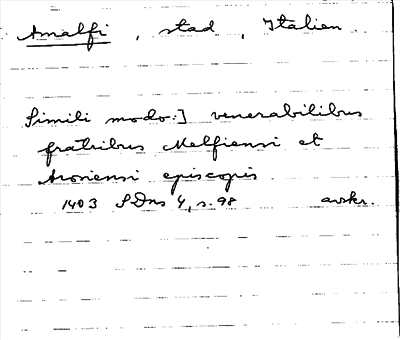 Amalfi, stad, Italien
Simili modo:] venerabilibus
fratribus Melfiensi et
Arosiensi episcopis
1403 SDns 4, s. 98 avskr.